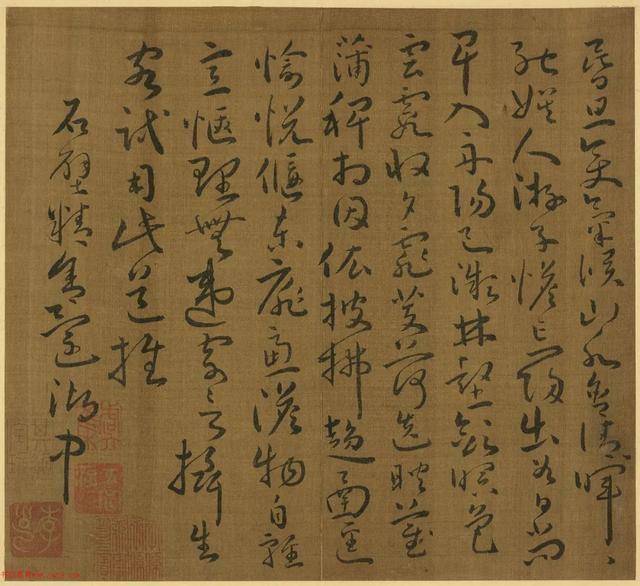 昏旦變氣候山水含清暉〻
能娛人游子憺忘歸出谷日尚
早入舟陽已微林壑斂暝色
雲霞收夕霏芰荷迭映蔚
蒲稗相因依披拂趨南徑
愉悅偃東扉慮澹物自輕
意愜理無違寄言攝生
客試用此道推
石壁精舍還湖中